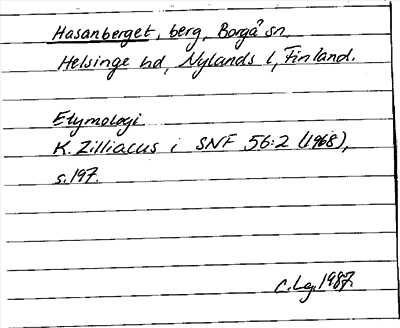 Hasanberget, berg, Borgå sn,
Helsinge hd, Nylands l, Finland.
Etymologi
K. Zilliacus i SNF 56:2 (1968),
s. 197.
C. Lg. 1987.